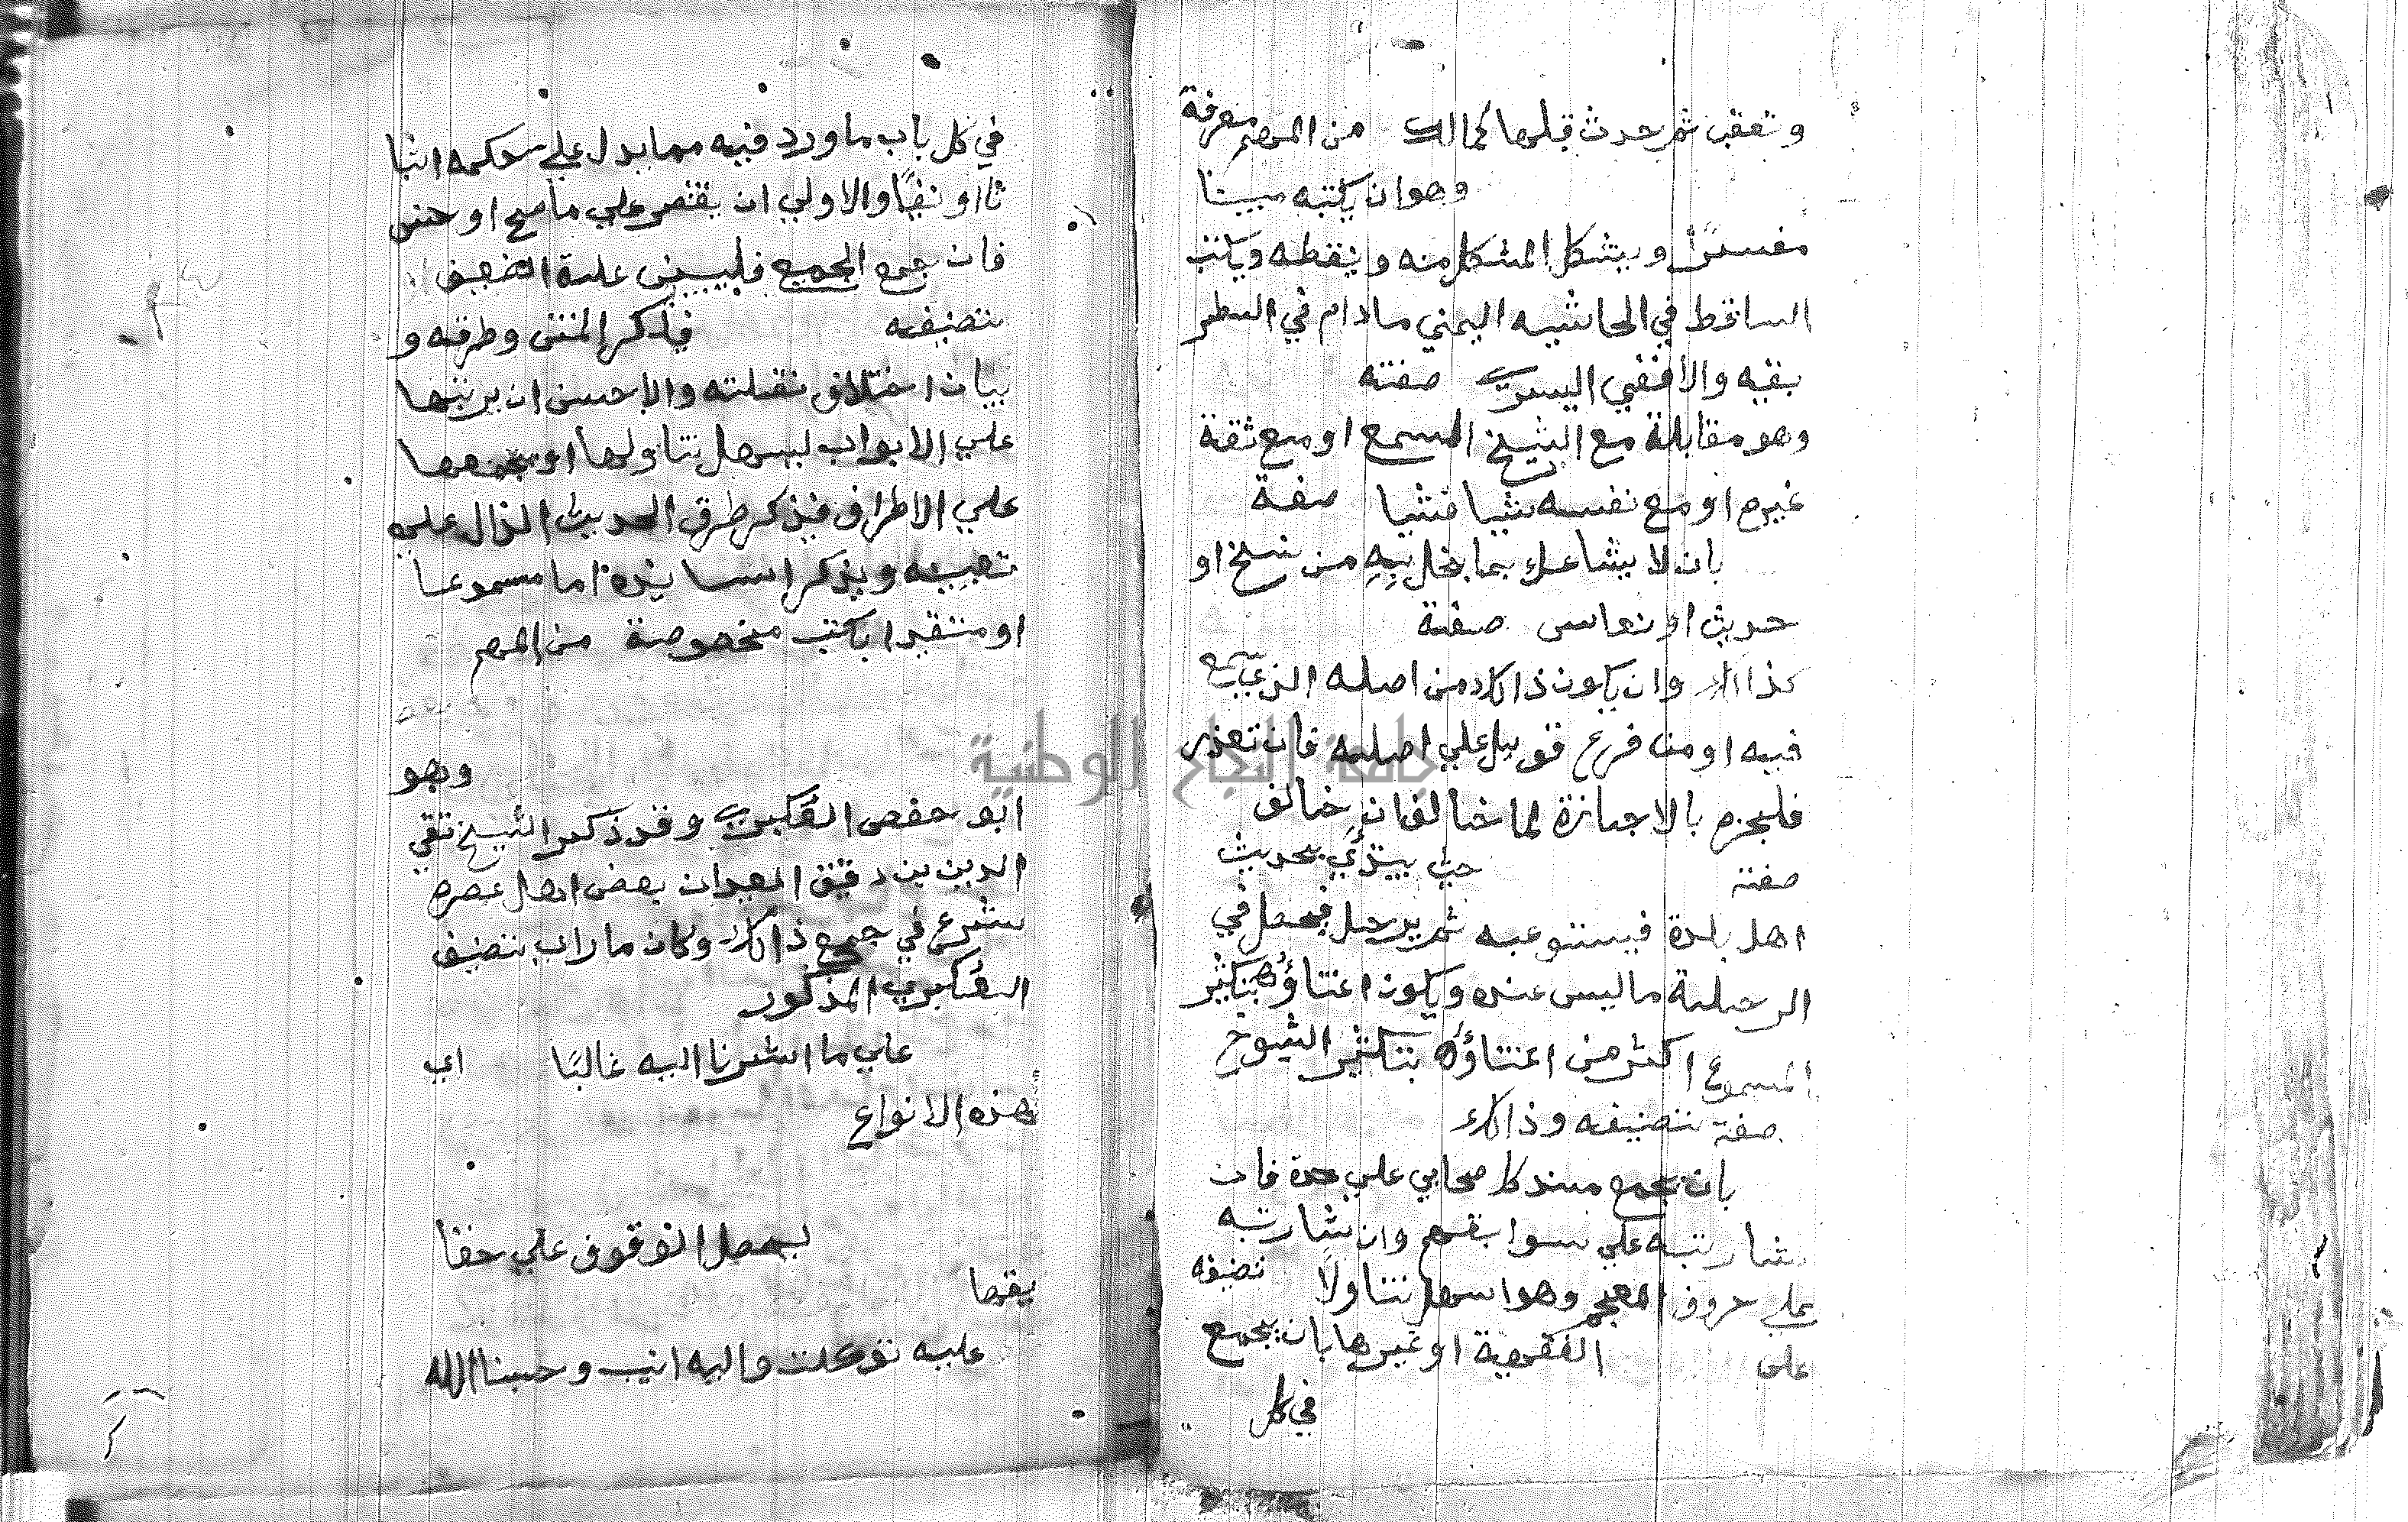 وتعقب ثم حدث قبلها كمالك من المهم معرفة
وهو ان يكتبه مبينا
مفسرًا ويشكل المشكل منه وينقطه ويكتب
الساقط في الحاشيه اليمني مادام في السطر
بقيه والا ففي اليسري صفته
وهو مقابلة مع الشيخ المسمع او مع ثقة
غيره او مع نفسه شيا فشيا صفة
بان لا يتشاغل بما يخل به من نسخ او
حديث او نعاس صفة
كذالك وان يكون ذالك من اصله الذي سمع
فيه او من فرع قوبل علي اصله فان تعذر
فليجزم بالاجازة لما خالف ان خالف
صفة حيث يبتدي بحديث
اهل بلدة فيستوعبه ثم يرحل فيحصل في
الرحلة ما ليس عنده ويكون اعتناؤه بتكثير
المسموع اكثر من اعتناؤه بتكثير الشيوخ
صفة تصنيفه وذالك
بان يجمع مسند كل صحابي علي حدة فان
شا رتبه علي سوابقهم وان شا رتبه
علي حروف المعجم وهو اسهل تناولًا تصنيفه
علي الفقهية او غيرها بان يجمع
في كل
في كل باب ما ورد فيه مما يدل علي حكمه اثبا
تا او نفيًا والاولي ان يقتصر علي ما صح او حسن
فان جمع الجميع فليبين علة الضعيف
تصنيفه فيذكر المتن وطرقه و
بيان اختلاف نقلته والاحسن ان يرتبها
علي الابواب ليسهل تناولها او يجمعها
علي الاطراف فيذكر طرق الحديث الدال علي
ويذكر اسانيده اما مسموعا
او متقيدا بكتب مخصوصة من المهم
وهو
ابو حفص العكبري وقد ذكر الشيخ تقي
الدين بن دقيق العيد ان بعض اهل عصره
شرع في جمع ذالك وكان ما راي تصنيف
العكبري المذكور
علي ما اشرنا اليه غالبًا اي
هذه الانواع
ليحصل الوقوف علي حقا
يقها
عليه توكلت واليه انيب وحسبنا الله
جامعة النجاح الوطنية